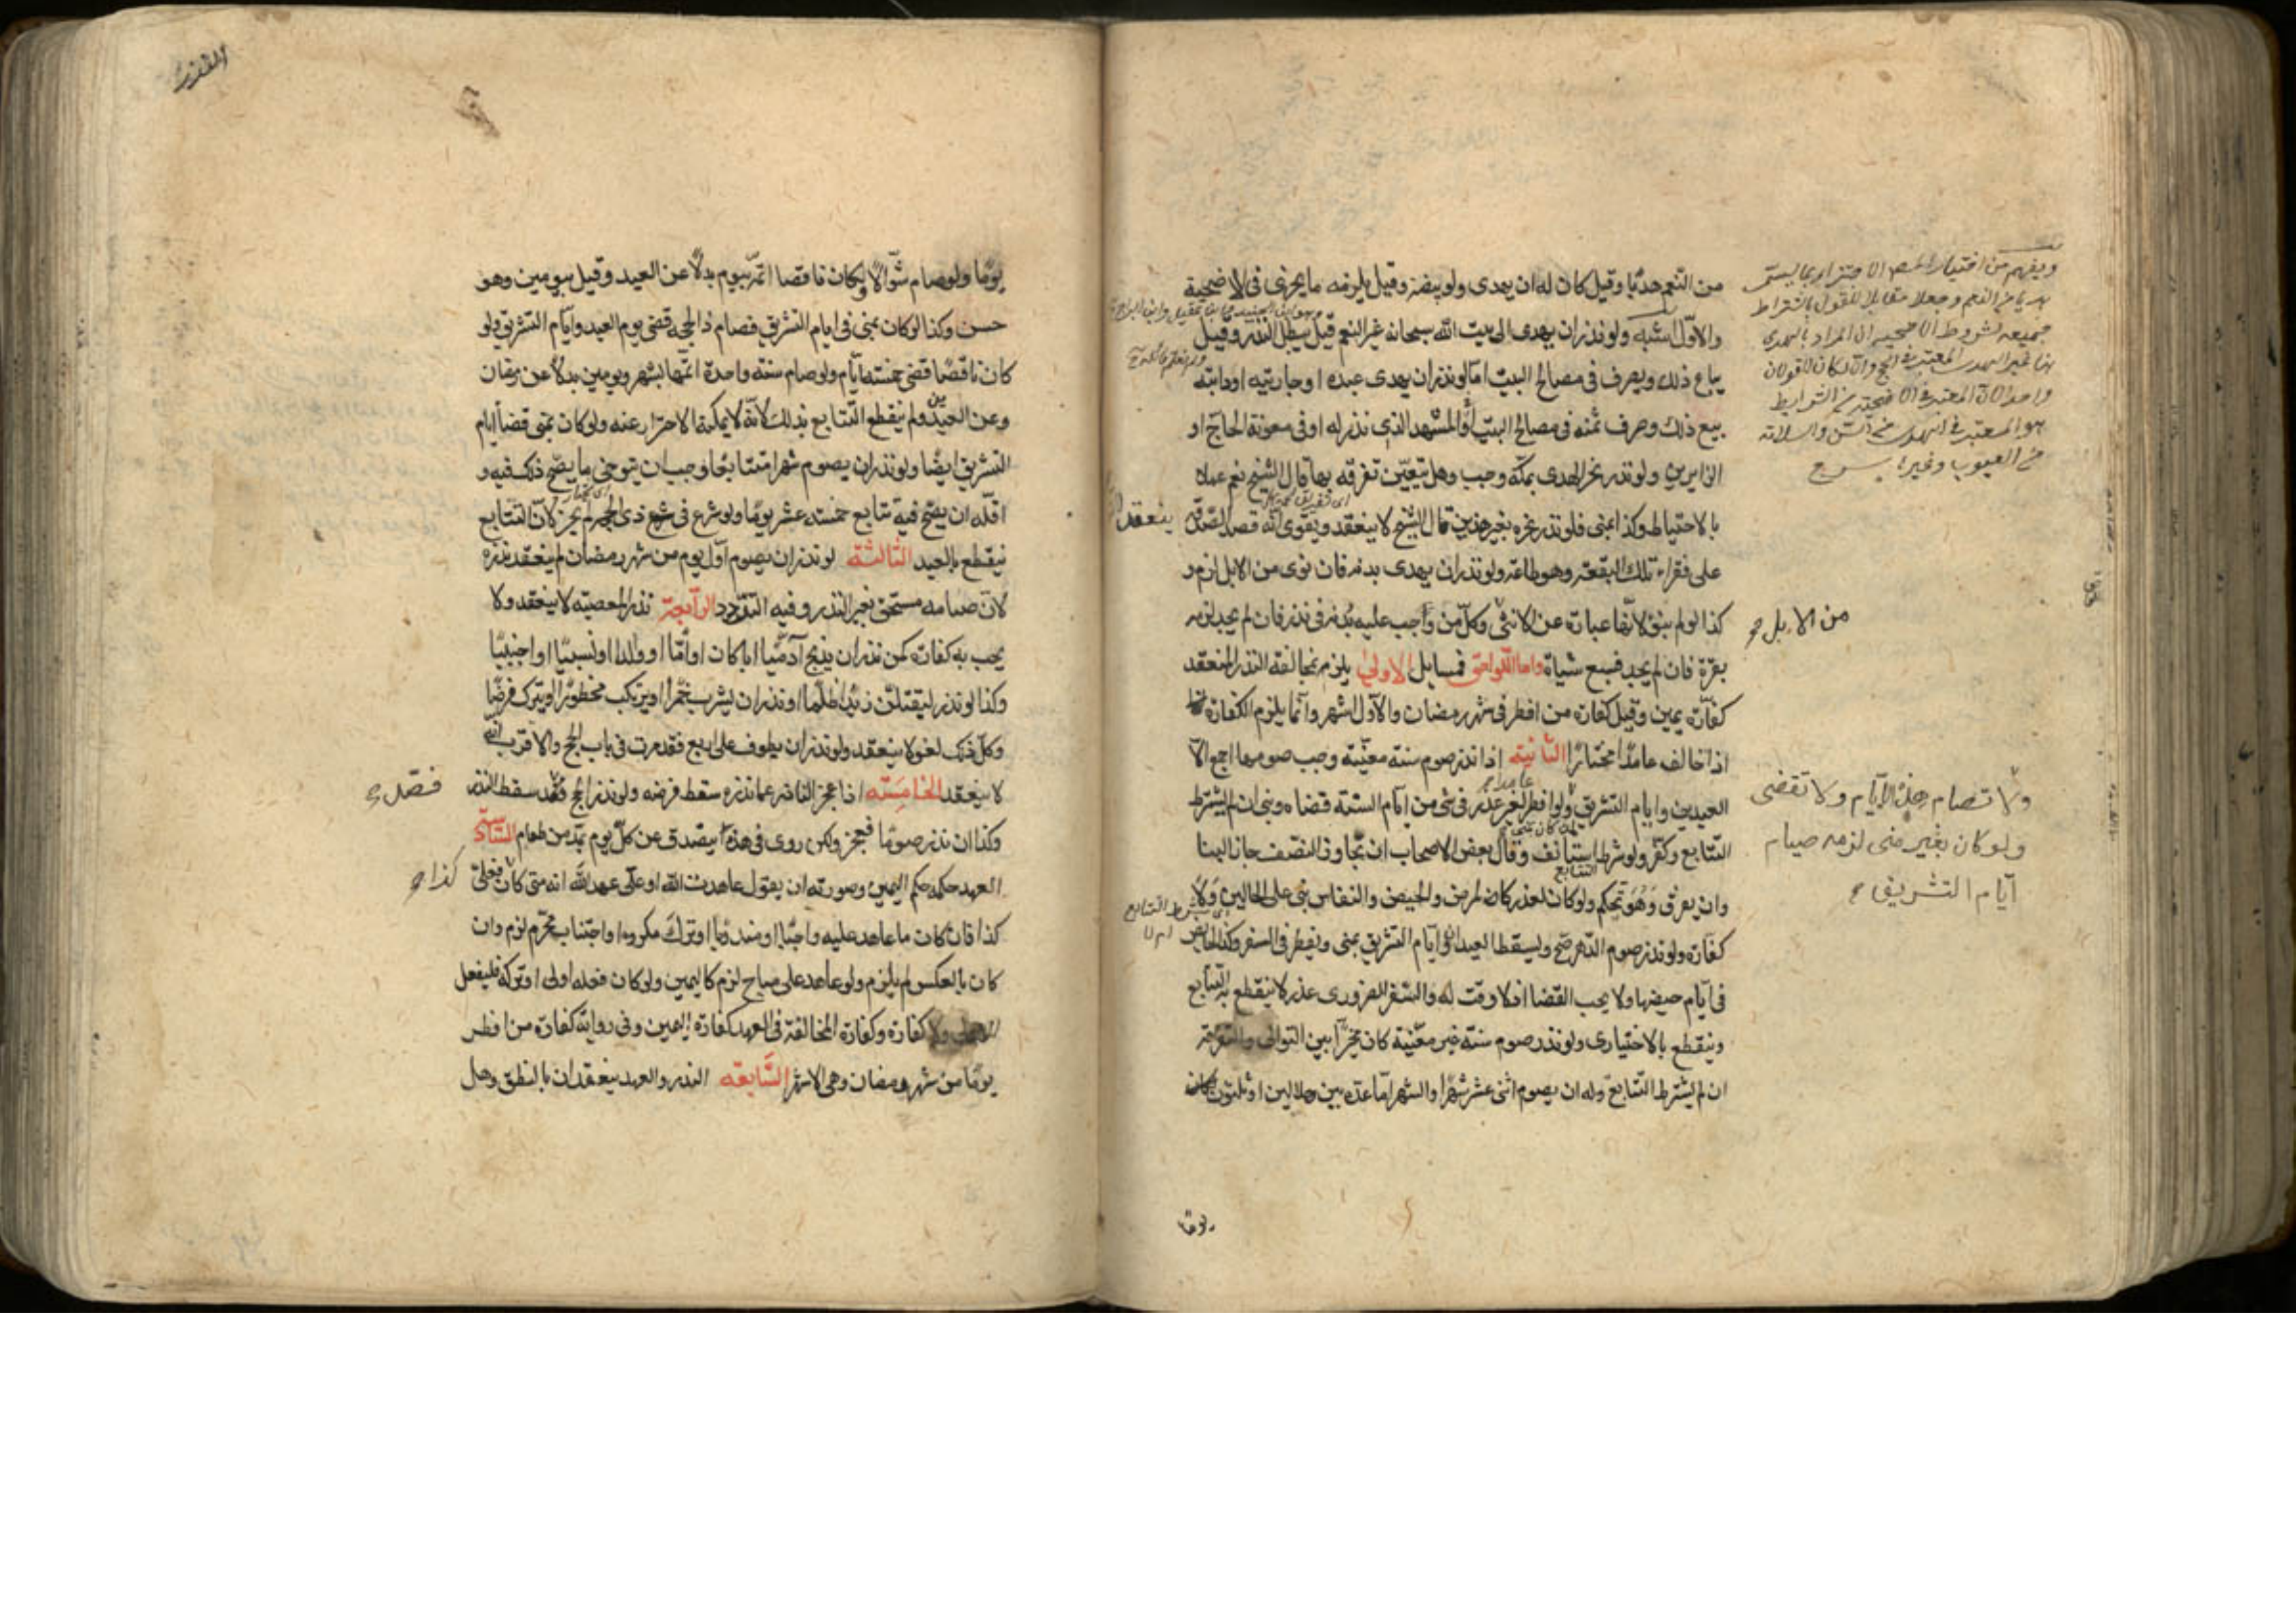 من النعم هديا وقيل كان له ان يهدى ولو بيضة وقيل يلزمه ما يجزى فى الاضحية
والاول اشبه ولو نذر ان يهدى الى بيت الله سبحانه غير النعم قيل يبطل النذر وقيل
يباع ذلك ويصرف فى مصالح البيت اما لو نذر ان يهدى عبده او جاريته او دابته
بيع ذلك وصرف ثمنه فى مصالح البيت او المشهد الذى نذر له او فى معونة الحاج او
الزايرين ولو نذر نحر الهدى بمكة وجب وهل يتعين تفرقه بها قال الشيخ نعم عملا
بالاحتياط وكذا بمنى فلو نذر نحره بغير هذين قال الشيخ لا ينعقد ويقوى انه قصد الصدقة
على فقراء تلك البقعة وهو طاعة ولو نذر ان يهدى بدنة فان نوى من الابل لزم و
كذا لو لم ينو لانها عبارة عن الانثى وكل من وجب عليه بدنة فى نذر فان لم يجد لزمه
بقرة فان لم يجد فسبع شياة واما اللواحق فمسايل الاولى يلزم مخالفة النذر المنعقد
كفارة يمين وقيل كفارة من افطر فى شهر رمضان والاول اشهر وانما يلزم الكفارة
اذا خالف عامدا مختارا الثانية اذا نذر صوم سنة معينة وجب صومها اجمع الا
العيدين وايام التشريق ولو افطر لغير عذر فى شئ من ايام السنة قضاه وبنى ان لم يشترط
التتابع وكفر ولو شرط استانف وقال بعض الاصحاب ان تجاوز النصف جاز البنا
وان يعرق وهو تحكم ولو كان لعذر كالمرض والحيض والنفاس بنى على الحالين ولا
كفارة ولو نذر صوم الدهر صح ويسقط العيدان وايام التشريق بمنى ويفطر فى السفر وكذا الحايض
فى ايام حيضها ولا يجب القضا اذ لا وقت له والسفر الضرورى عذر لا ينقطع به التتابع
وينقطع بالاختيارى ولو نذر صوم سنة غير معينة كان مخيرا بين التوالى والتفرقة
ان لم يشترط التتابع وله ان يصوم اثنى عشر شهرا والشهر اما عدة بين هلالين او ثلثون
ويفهم من اختيار المص الاجتزاء بما يسمى
هديا من النعم وجعله مقابلا للقول باشتراط
جميعه شروط الاضحية ان المراد بالهدى
هنا غير الهدى المعتبر فى الحج والا لكان القولان
واحدا لان المعتبر فى الاضحية من الشرايط
هو المعتبر فى الهدى من السن والسلامة
من العيوب وغيرها
ينعقد
من الابل
ولا تصام هذه الايام ولا تقضى
ولو كان بغير منى لزمه صيام
ايام التشريق
عامدا
التتابع
يوما
يوما ولو صام شوالا وكان ناقصا اتمه بيوم بدلا عن العيد وقيل بيومين وهو
حسن وكذا لو كان بمنى فى ايام التشريق فصام ذا الحجه قضى يوم العيد وايام التشريق ولو
كان ناقصا قضى خمسة ايام ولو صام سنة واحدة اتمها بشهر ويومين بدلا عن رمضان
وعن العيدين ولم ينقطع التتابع بذلك لانه لا يمكنه الاحتراز عنه ولو كان بمنى قضا ايام
التشريق ايضا ولو نذر ان يصوم شهرا متتابعا وجب ان يتوخى ما يصح ذلك فيه و
اقله ان يصح فيه تتابع خمسة عشر يوما ولو شرع فى ذى الحجه لم يجز لان التتابع
ينقطع بالعيد الثالثة لو نذر ان يصوم اول يوم من شهر رمضان لم ينعقد نذره
لان صيامه مستحق بغير النذر وفيه التردد الرابعة نذر المعصية لا ينعقد ولا
يجب به كفارة كمن نذر ان يذبح آدميا ابا كان او اما او ولدا او نسبيا او اجنبيا
وكذا لو نذر ليقتلن زيدا ظلما او نذر ان يشرب خمرا او يرتكب محظورا او يترك فرضا
وكل ذلك لغو لا ينعقد ولو نذر ان يطوف على اربع فقد مرت فى باب الحج والاقرب انه
لا ينعقد الخامسة اذا عجز الناذر عما نذره سقط فرضه ولو نذر الحج فصد سقط النذر
وكذا ان نذر صوما فعجز ولكن روى فى هذا يتصدق عن كل يوم بمد من طعام السادسة
العهد حكمه حكم اليمين وصورته ان يقول عاهدت الله او على عهد الله انه متى كان فعلى
كذا فان كان ما عاهد عليه واجبا او مندوبا او ترك مكروه او اجتناب محرم لزم وان
كان بالعكس لم يلزم ولو عاهد على مباح لزم كاليمين ولو كان فعله اولى او تركه فليفعل
الاولى ولا كفارة وكفارة المخالفة فى العهد كفارة اليمين وفى رواية كفارة من افطر
يوما من شهر رمضان وهى الاشهر السابعة النذر والعهد ينعقدان بالنطق وهل
فصد
كذا